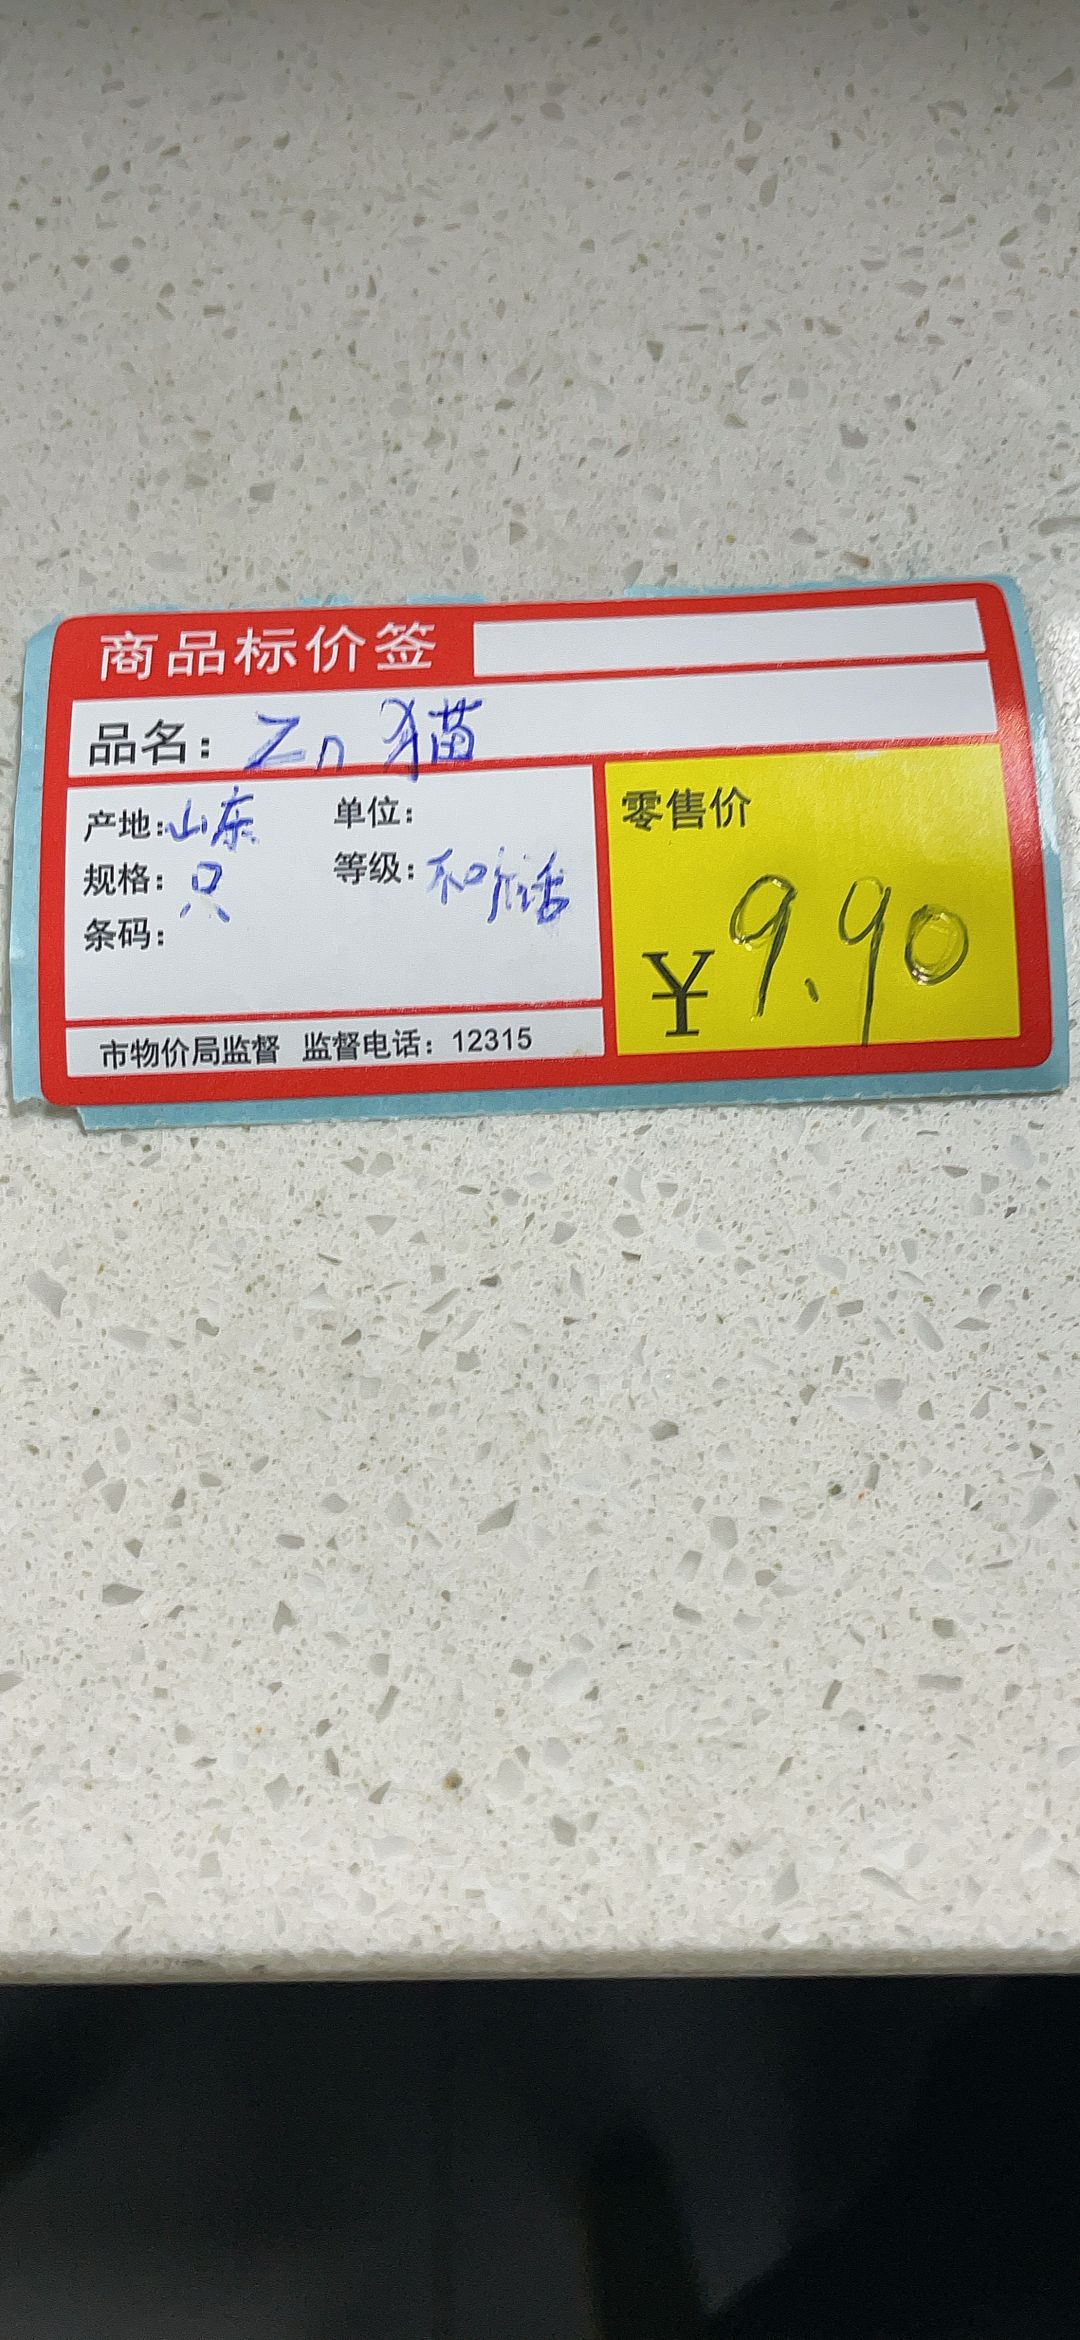 商品标价签
品名：Zn 猫
产地：山东 单位：
规格：只 等级：
条码：
零售价
¥9.90
市物价局监督 监督电话：12315